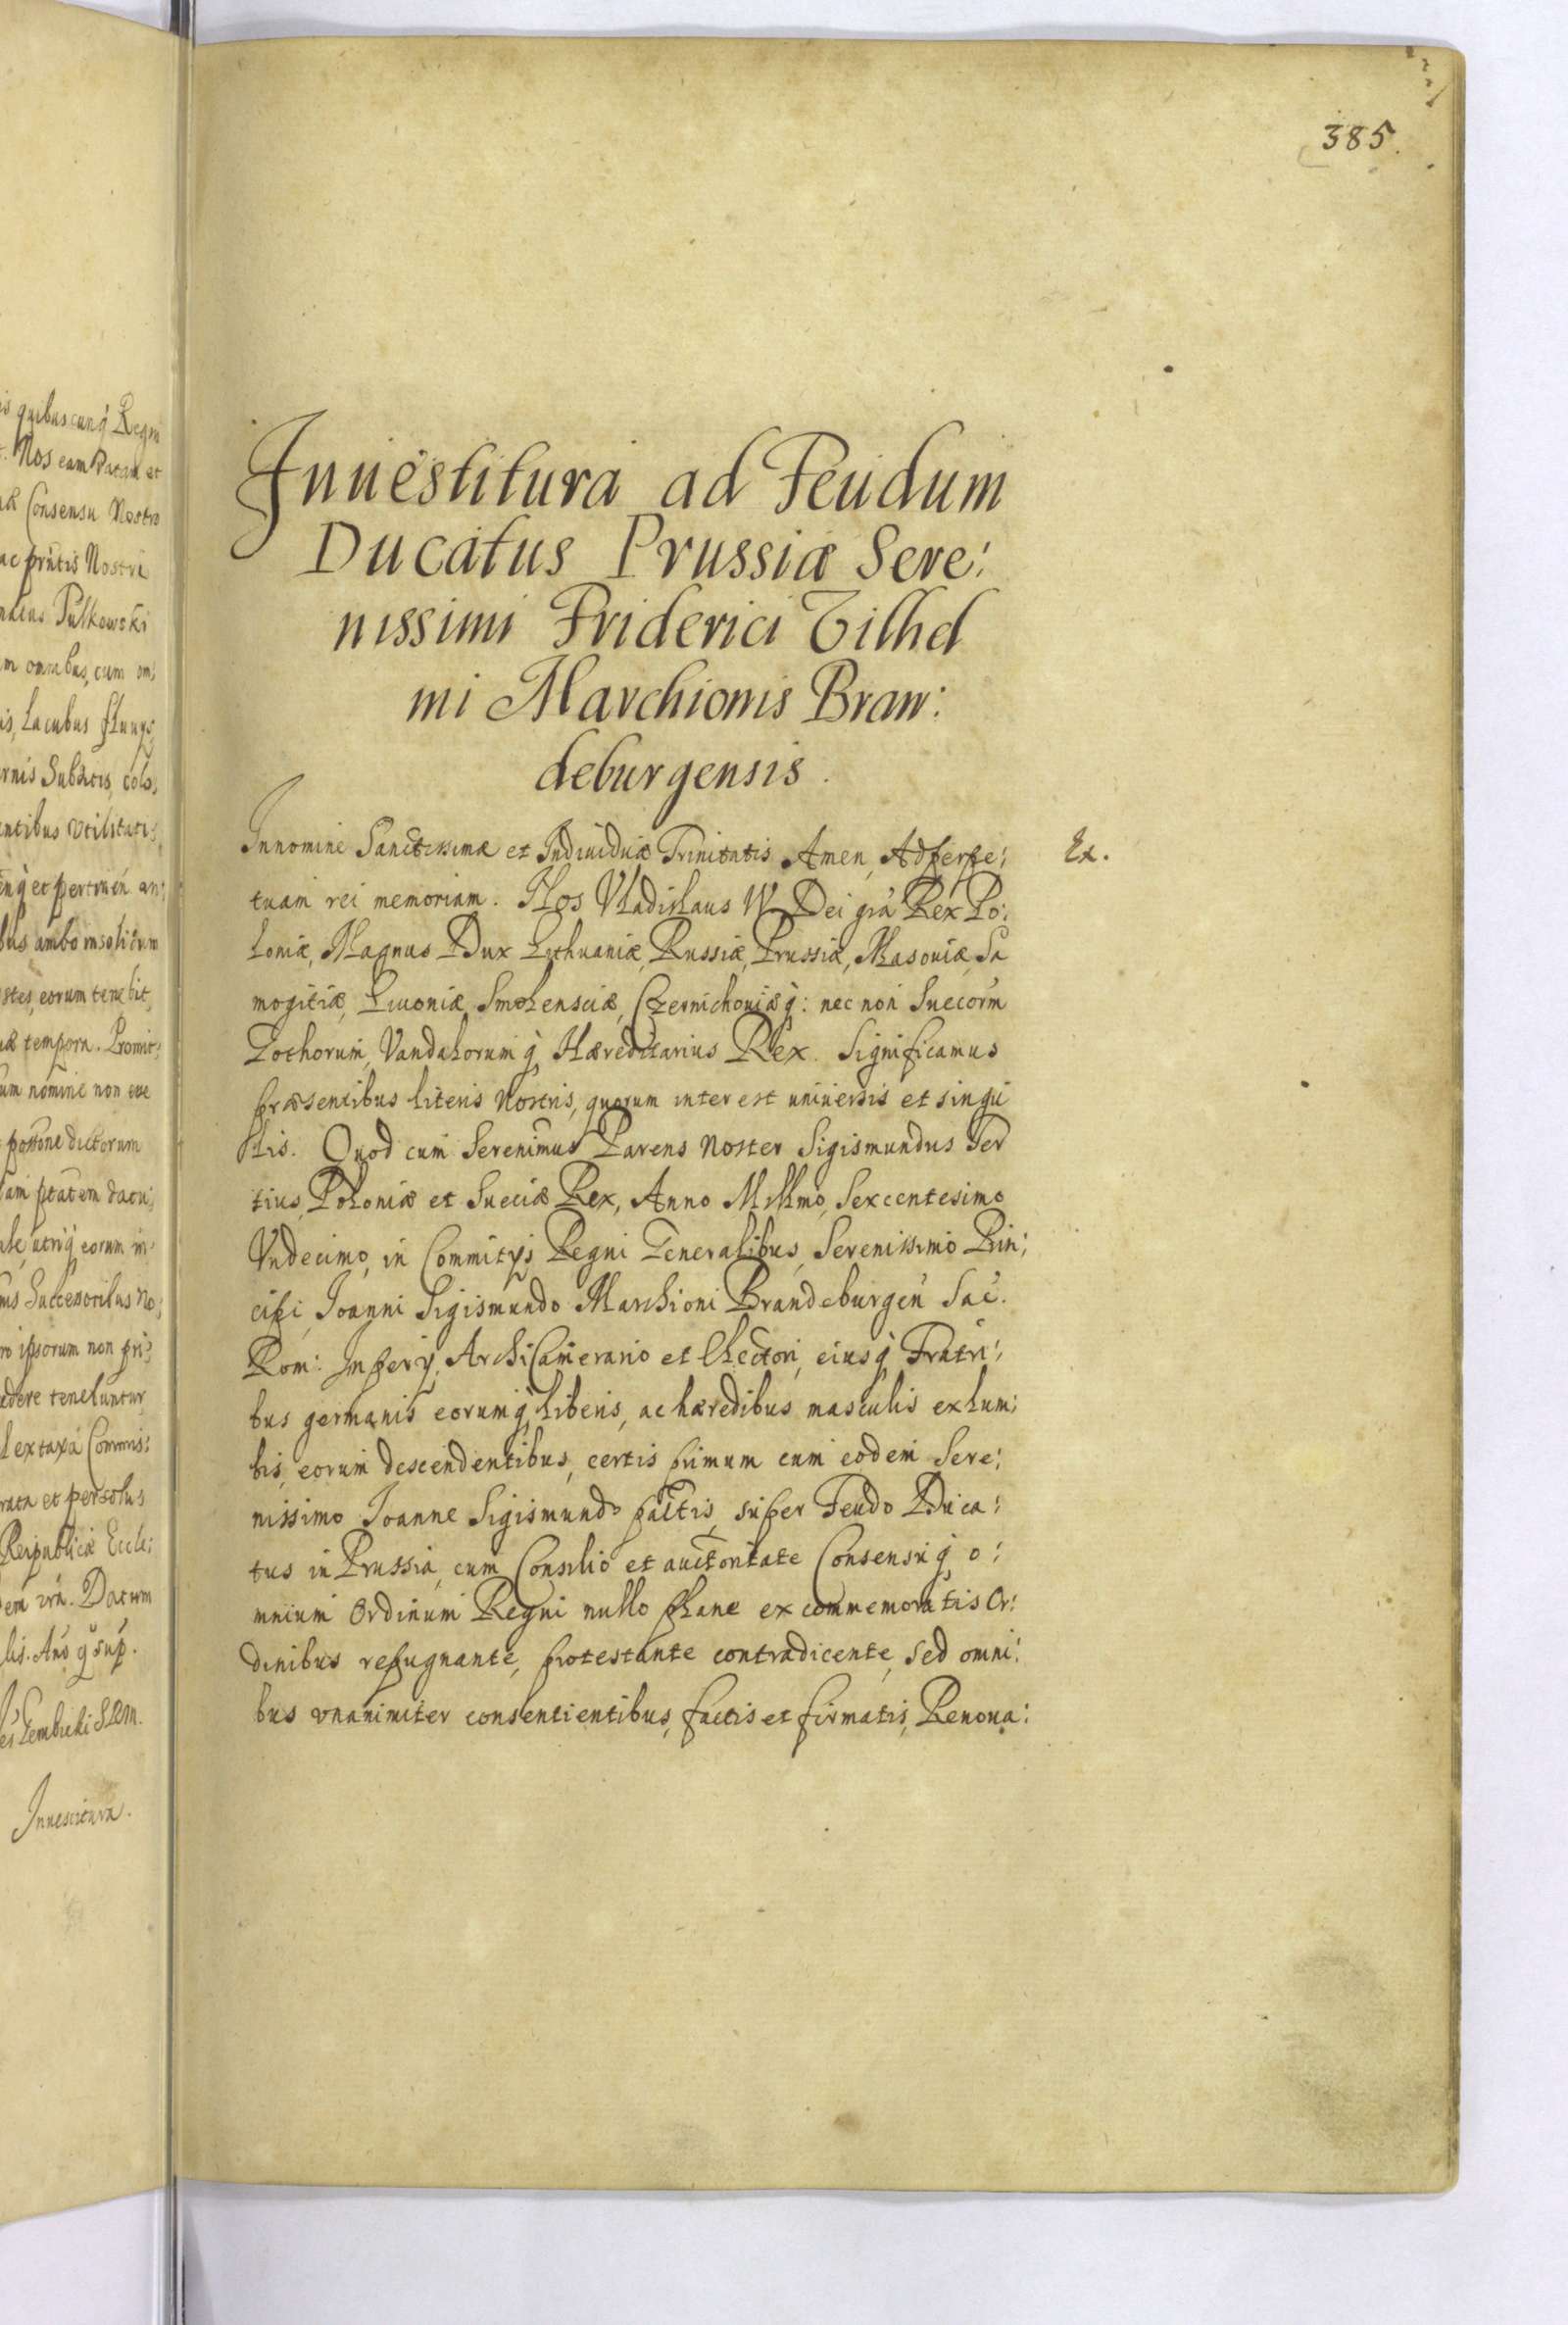 is quibuscunq̀ Regni
Nos eam Ratam et
Consensu Nostro
ac pn̄tis Nostri
Pulkowski
m omnibus, cum om:
is, Lacubus fluuys,
rnis Subditis, colo,
entibus Vtilitati,
bus ambo insolidum
stes, eorum tenebit,
tempora. Promit:
um nomine non eue
possone dictorum
ale, utriq̀ eorum in:
Successoribus No:
ro ipsorum non pri:
edere tenebuntur
ex taxa Commis:
rata et persolus
Reipublicæ Eccle:
Datum
lis. Año q̀ sup̄.
Innestitura.
385.
Innestitura ad Feudum
Ducatus Prussiæ Sere:
nissimi Friderici Vilhel
mi Marchionis Bran:
deburgensis.
Innomine Sanctissimæ et Indiuiduæ Trinitatis Amen, Adperpe:
Ex.
tuam rei memoriam. Nos Vladislaus IV Dei grā Rex Po:
loniæ, Magnus Dux Lithuaniæ, Russiæ, Prussiæ, Masouiæ, Sa
mogitiæ, Liuoniæ, Smolensciæ, Czernichouiæq̀: nec non Suecorm̄
Gothorum, Vandalorumq̀ Hæreditarius Rex. Significamus
præsentibus literis Nostris, quorum interest uniuersis et singu
lis. Quod cum Serenimus Parens Noster Sigismundus Ter
tius, Poloniæ et Sueciæ Rex, Anno Millmō, Sexcentesimo
Vndecimo, in Commitys Regni Generalibus, Serenissimo Prin:
cipi, Joanni Sigismundo Marchioni Brandeburgeñ Sac̄.
Rom: Impery, ArchiCamerario et Electori, eiusq̀ Fratri:
bus germanis eorumq̀ liberis, ac hæredibus masculis ex lum:
bis, eorum descendentibus, certis primum cum eodem Sere:
nissimo Joanne Sigismundo pactis, super Feudo Duca:
tus in Prussia, cum Consilio et auctoritate Consensuq̀ o:
mnium Ordinum Regni nullo plane ex commemoratis Or:
dinibus repugnante, protestante contradicente, sed omni:
bus vnanimiter consentientibus, factis et firmatis, Renoua: